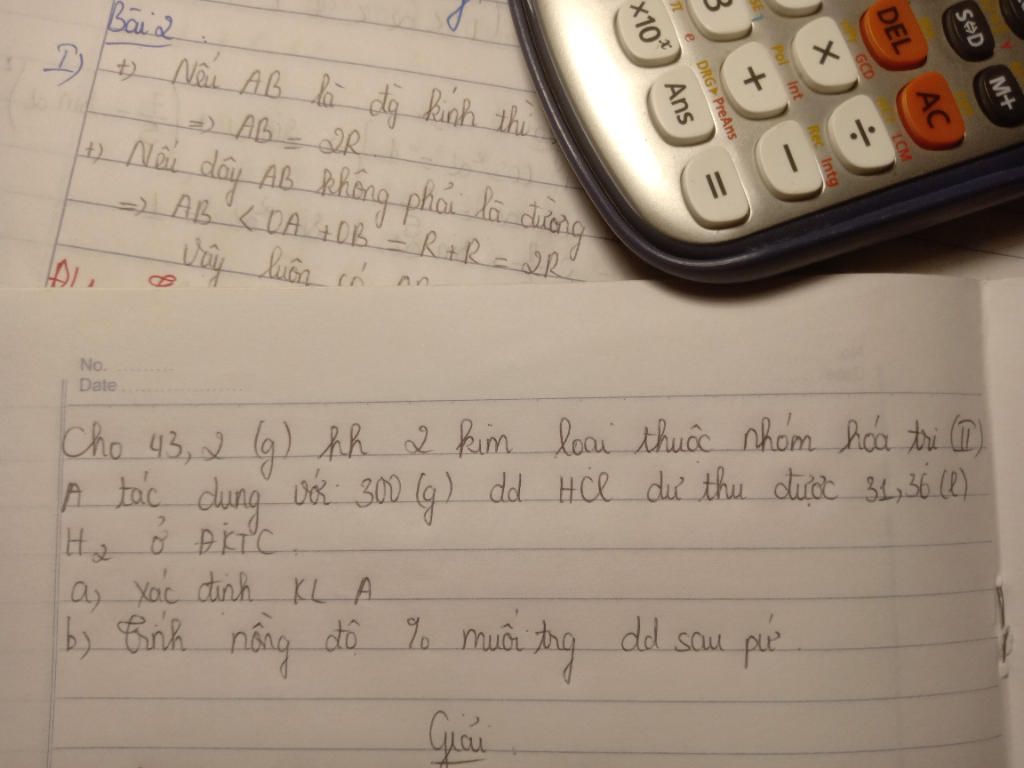 Bài 2
I) +) Nếu AB là đg kính thì
=> AB = 2R
+) Nếu dây AB không phải là đường
=> AB < OA + OB = R + R = 2R
Vậy luôn có
No.
Date
Cho 43,2 (g) hh 2 kim loai thuôc nhóm hóa tri (II)
A tác dung với 300 (g) dd HCl dư thu được 31,36 (l)
H2 ở ĐKTC.
a, xác định KL A
b) Tính nồng độ % muối trg dd sau pứ.
Giải
x10^x
3
DEL
S⇔D
Ans
+
×
AC
M+
=
−
÷
π
e
Pol
Int
GCD
DRG▸
PreAns
Rec
Intg
LCM